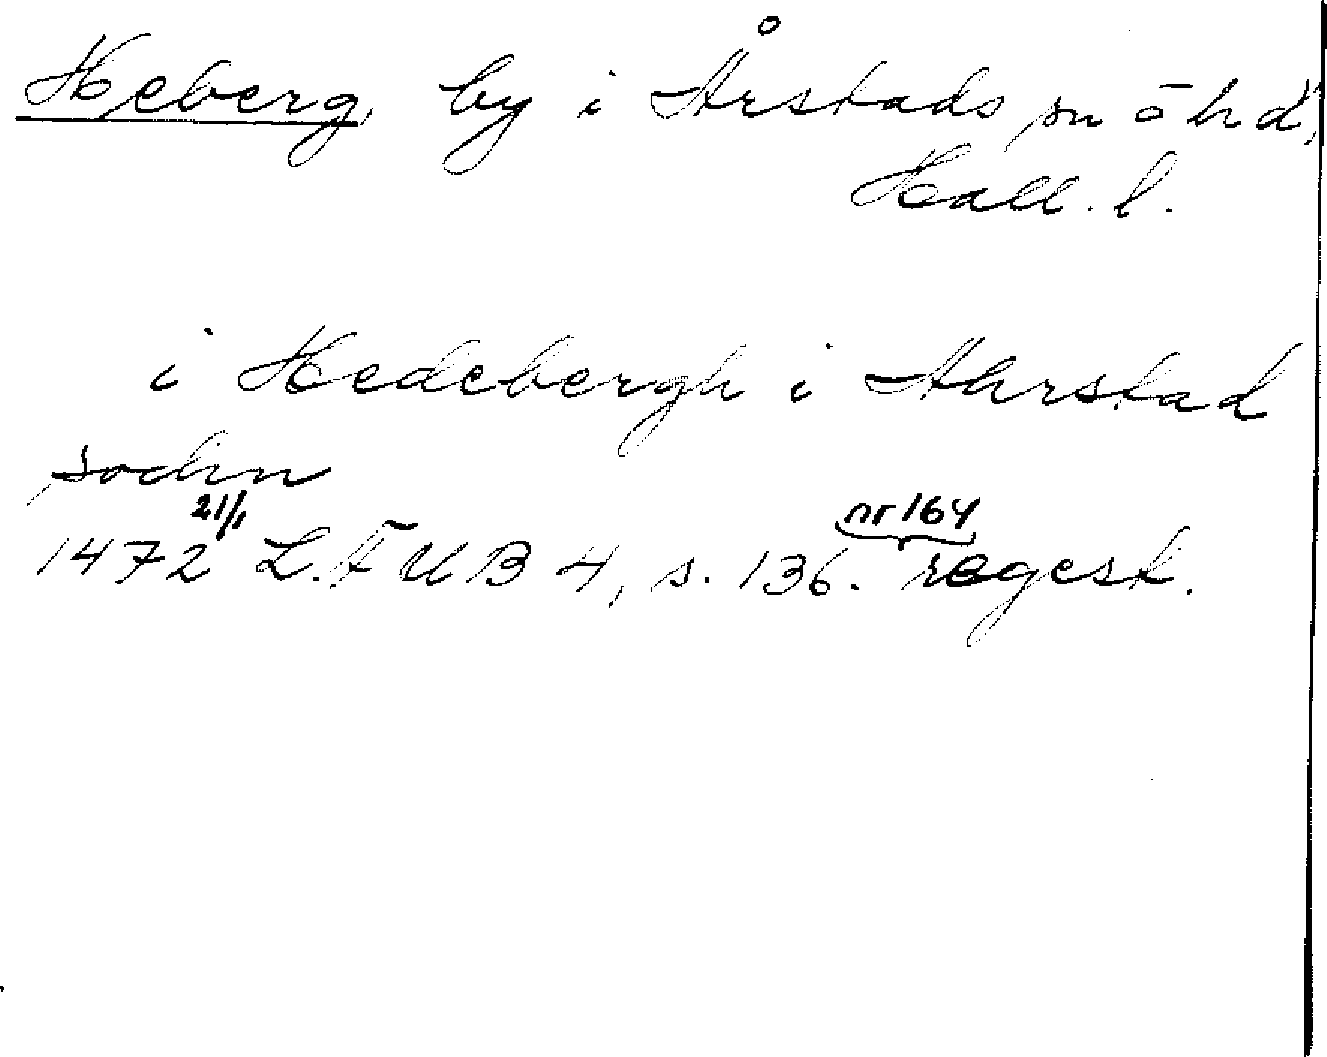 Heberg, by i Årstads sn o hd,
Hall. l.
i Hedebergh i Ahrstad
sochn
21/1 nr 164
1472 L.Ä UB 4, s. 136. regest.